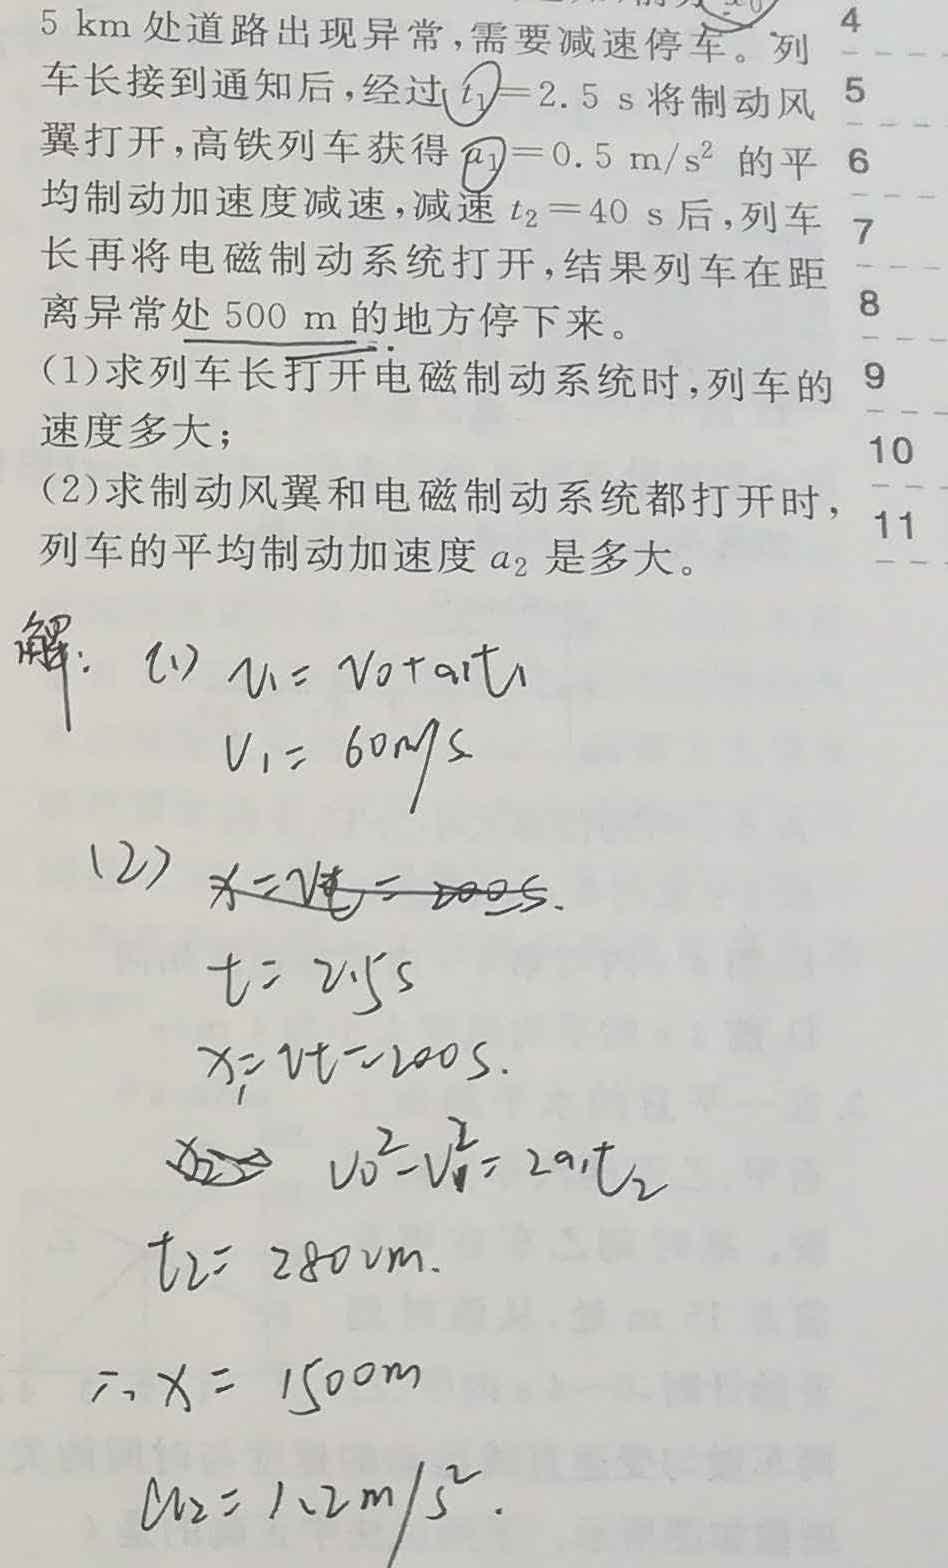 5 km 处道路出现异常,需要减速停车。列
车长接到通知后,经过 t₁=2.5 s 将制动风
翼打开,高铁列车获得 a₁=0.5 m/s² 的平
均制动加速度减速,减速 t₂=40 s 后,列车
长再将电磁制动系统打开,结果列车在距
离异常处 500 m 的地方停下来。
(1)求列车长打开电磁制动系统时,列车的
速度多大;
(2)求制动风翼和电磁制动系统都打开时,
列车的平均制动加速度 a₂ 是多大。
4
5
6
7
8
9
10
11
解: (1) v₁= v₀+a₁t₁
v₁= 60m/s
(2) x=vt=200s.
t= 2.5s
x₁=vt=200s.
x₂ v₀²-v₁²=2a₁t₂
t₂= 2800m.
∴x= 1500m
a₂= 1.2m/s².